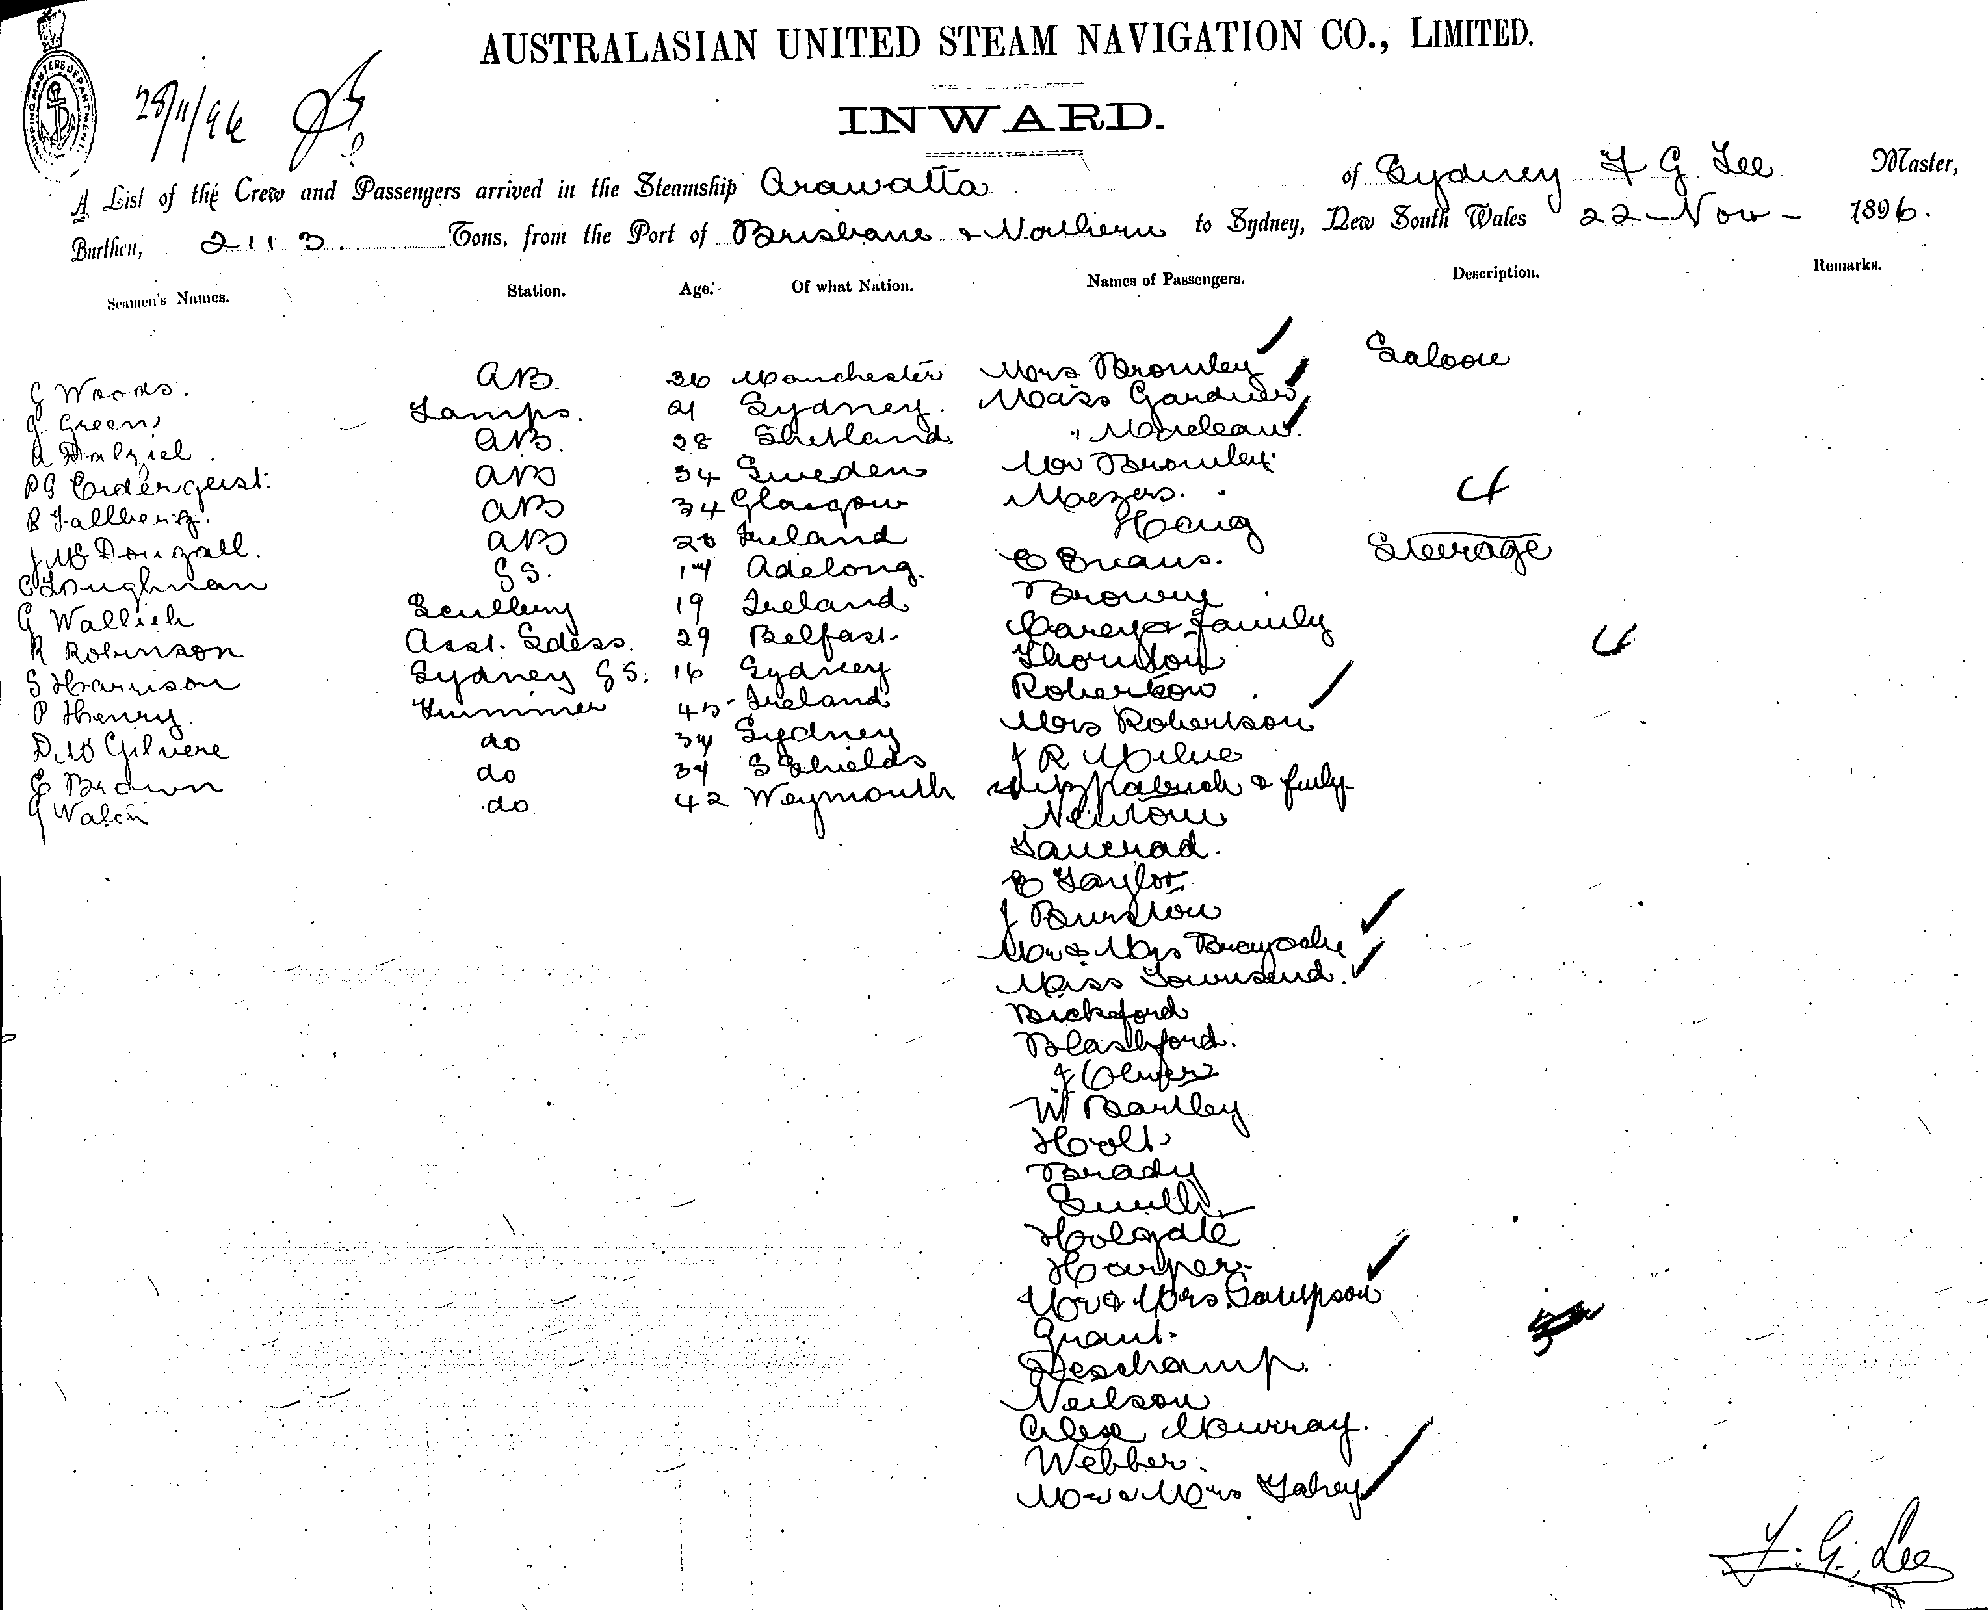 AUSTRALASIAN UNITED STEAM NAVIGATION CO., LIMITED.
28/11/96
INWARD.
A List of the Crew and Passengers arrived in the Steamship Arawatta of Sydney F G Lee Master,
Burthen, 2113. Tons, from the Port of Brisbane & Northern to Sydney, New South Wales 22 - Nov - 1896.
Seamen's Names. Station. Age. Of what Nation. Names of Passengers. Description. Remarks.
G Woods. AB. 36 Manchester Mrs Bromley Saloon
G Green Lamps. 21 Sydney. Miss Gardner
A Dalziel. AB. 38 Shetland " Maclean.
AB 34 Sweden Mr Bromley
AB 34 Glasgow Mezers. 4
J McDougall. AB 26 Ireland Haug
C Loughnan GS. 17 Adelong. C Evans. Steerage
G Wallich Scullery 19 Ireland Browne
R Robinson Asst. Sdess. 29 Belfast. Carey & Family 4
S Harrison Sydney GS. 16 Sydney Thornton
P Henry. Trimmer 45 Ireland Robertson
do 34 Sydney Mrs Robertson
E Brown do 34 S Shields J R Milne
G do 42 Weymouth Fitzpatrick & fmly
Newton
Tancrad.
E Taylor
J Burston
Mr & Mrs
Miss Townsend.
Bickford
Blashford.
J Oliver
W Bartley
Holt
Brady
Smith
Holgate
Harper
Mr & Mrs Sampson
Grant
Deschamp.
Neilson
Alex Murray.
Webber.
Mr & Mrs Fahey
F. G. Lee